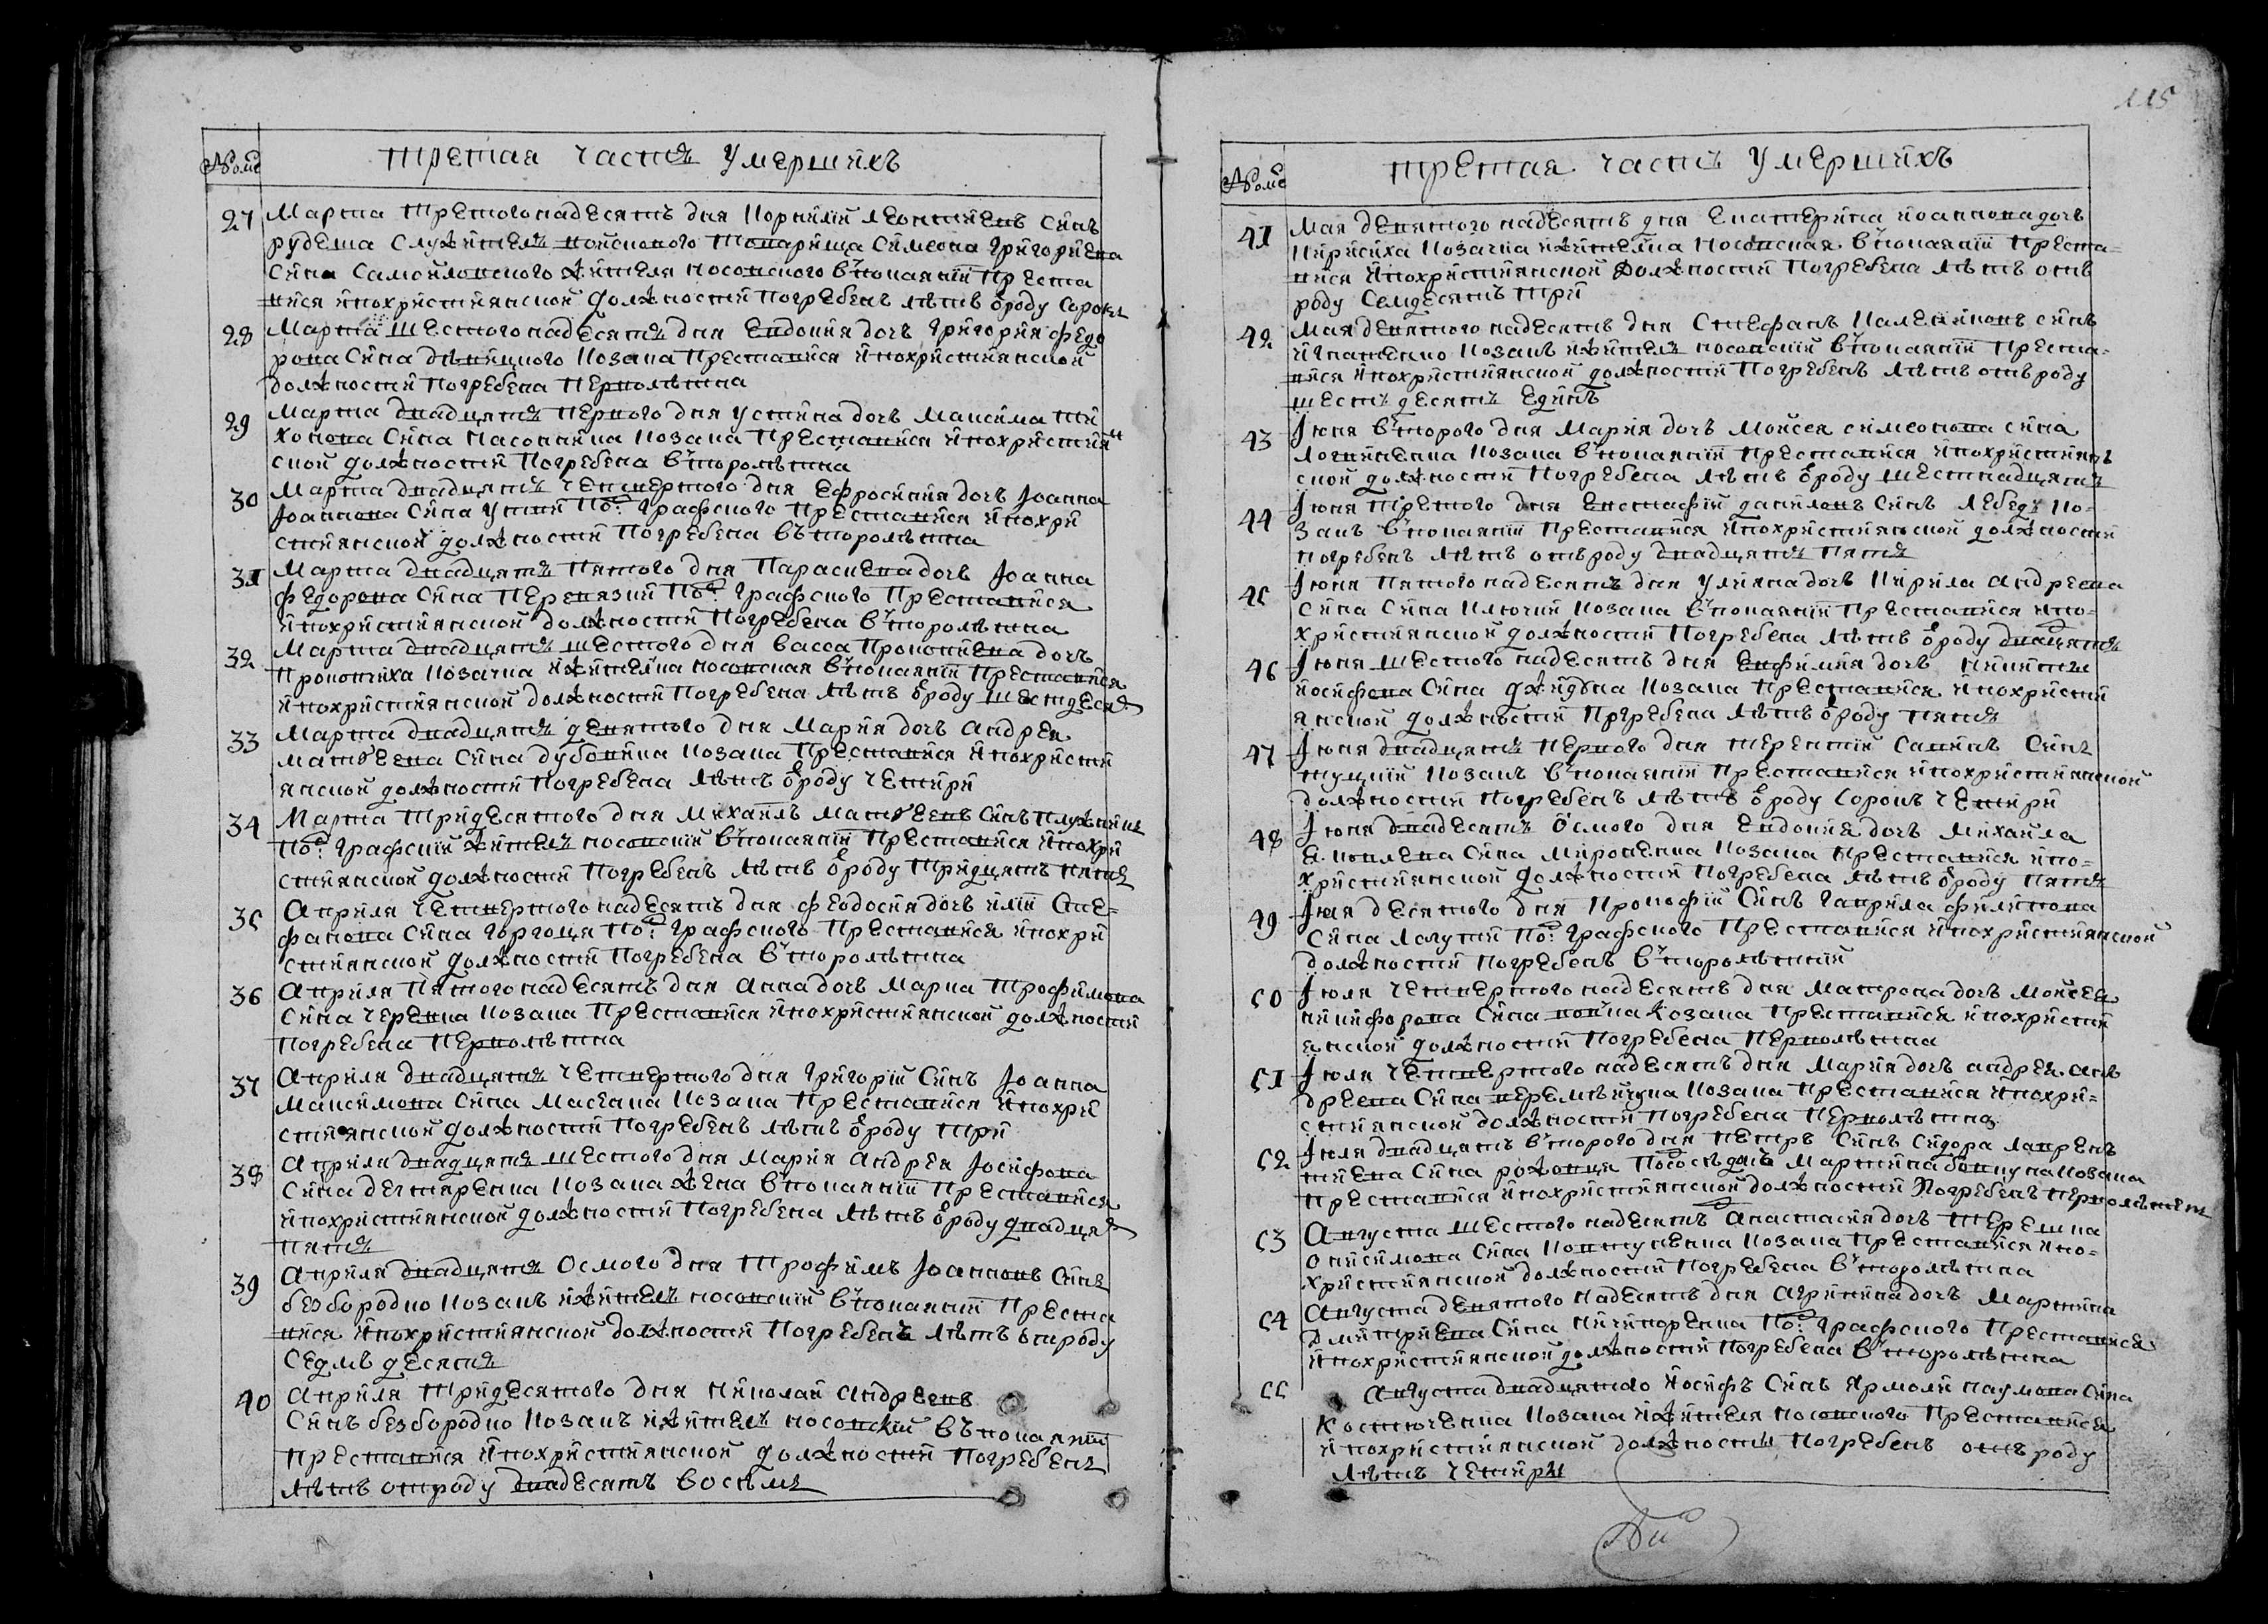 Номе третая часть умершихъ
27 Марта третогонадесять дня Корнилїй леонтиевъ синъ
рудеша служитель войскового товариша Симеона григориева
сина Самойловского жителя носовского в покаянїй преста
вися и похристиянской должности погребенъ лѣтъ ѿроду сорокъ
28 Марта шестогонадесять дня Евдокия дочъ григория федо
рова сина козака преставися и похристиянской
должности погребена перволѣтна
29 Марта двадцять первого дня устина дочъ максима ти
хонова сина козака преставися и похристиян
ской должности погребена второлѣтна
30 Марта двадцять четвертого дня Ефросиния дочъ Іоанна
Іоаннова сина под: графского преставися и похри
стиянской должности погребена въторолѣтна
31 Марта двадцять пятого дня параскева дочъ Іоанна
федорова сина перевязки под: графского преставися
и похристиянской должности погребена второлѣтна
32 Марта двадцять шестого дня васса прокопиева дочъ
козачка и жителка носовская в покаянїй преставися
и похристиянской должности погребена лѣтъ ѿроду шестдесят
33 Марта двадцять девятого дня Мария дочъ андрея
матѳеева сина дубовика козака преставися и похристи
янской должности погребена лѣтъ ѿроду четири
34 Марта тридесятого дня михаилъ матѳеевъ синъ плужникъ
под: графский житель носовский в покаянїй преставися и похри
стиянской должности погребенъ лѣтъ ѿроду тридцять пять
35 Априля четвертогонадесять дня феодосия дочъ илїй сте=
фанова сина под: графского преставися и похри
стиянской должности погребена второлѣтна
36 Априля пятогонадесять дня анна дочъ марка трофимова
сина черевка козака преставися и похристиянской должности
погребена перволѣтна
37 Априля двадцять четвертого дня григорїй синъ Іоанна
максимова сина масгана козака преставися и похри
стиянской должности погребенъ лѣтъ ѿроду три
38 Априля двадцять шестого дня мария андрея Іосифова
сина дегтяренка козака жена в покаянїй преставися
и похристиянской должности погребена лѣтъ ѿроду двадцят
пять
39 Априля двадцять осмого дня трофимъ Іоанновъ синъ
безбородко козакъ и житель носовский в покаянїй преста
вися и похристиянской должности погребенъ лѣтъ ѿроду
седмъ десять
40 Априля тридесятого дня николай андреевъ
синъ безбородко козакъ и житель носовский въ покаянїй
преставися и похристиянской должности погребенъ
лѣтъ отроду двадесять восемъ
115
Номе третая частъ умершихъ
41 Мая девятогонадесять дня Екатерина иоаннова дочъ
козачка и жителка носовская в покаянїй преста=
вися и похристиянской должности погребена лѣтъ отъ
роду семдесятъ три
42 Мая девятогонадесять дня Стефанъ синъ
игнатенко козакъ и житель носовский в покаянїй преста=
вися и похристиянской должности погребенъ лѣтъ отъроду
шесть десять единъ
43 Іюня второго дня мария дочъ моисея симеонова сина
логвиненка козака в покаянїй преставися и похристиянъ
ской должности погребена лѣтъ ѿроду шестнадцять
44 Іюня третого дня Евстафїй даниловъ синъ лебедь ко=
закъ в покаянїй преставися и похристиянской должности
погребенъ лѣтъ отъроду двадцять пять
45 Іюня пятогонадесять дня улияна дочъ кирила андреева
сина сина ключки козака в покаянїй преставися и по=
християнской должности погребена лѣтъ ѿроду двацять
46 Іюня шестогонадесять дня Евфимия дочъ никити
иосифова сина козака преставися и похристи
янской должности погребена лѣтъ ѿроду пять
47 Іюня двадцять первого дня терентїй савинъ синъ
козакъ в покаянїй преставися и похристиянской
должности погребенъ лѣтъ ѿроду сорокъ четири
48 Іюня двадесять ѻсмого дня Евдокия дочъ михаила
сина мироненка козака преставися и по=
християнской должности погребена лѣтъ ѿроду пять
49 Іюля десятого дня прокофїй синъ гаврила филипова
сина лагутки под: графского преставися и похристиянской
должности погребенъ второлѣтний
50 Іюля четвертогонадесять дня матрона дочъ моисея
никифорова сина козака преставися и похристи
янской должности погребена перволѣтна
51 Іюля четвертогонадесять дня мария дочъ андрея ан
дреева сина козака преставися и похри=
стиянской должности погребена перволѣтна
52 Іюля двадцять второго дня петръ синъ сидора лаврен
тиева сина мартина козака
преставися и похристиянской должности погребенъ перволѣтенъ
53 Августа шестогонадесять анастасия дочъ терешка
онисимова сина козака преставися и по=
християнской должности погребена второлѣтна
54 Августа девятогонадесять дня агрипина дочъ мартина
дмитриева сина ничипоренка под: графского преставися
и похристиянской должности погребена второлѣтна
55 Августа двадцятого иосифъ синъ ярмоли наумова сина
костюченка козака и жителя носовского преставися
и похристиянской должности погребенъ отъроду
лѣтъ четири